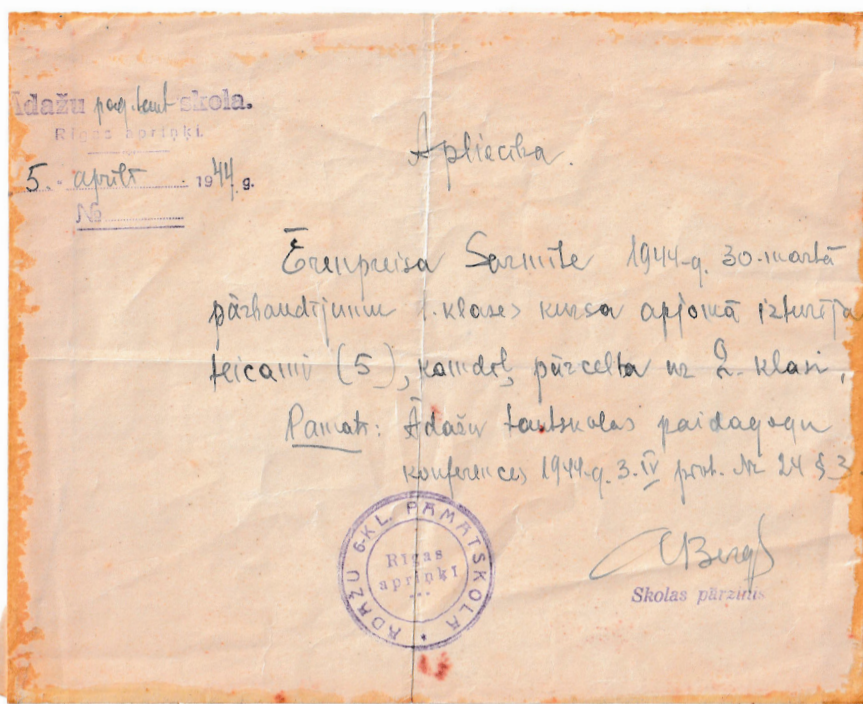 Ādažu pag. taut skola.
Rīgas apriņķī.
5. aprīlī 1944 g.
№
Apliecība.
Ērenpreisa Sarmīte 1944-g. 30-martā
pārbaudījumu 1. klases kursa apjomā izturēja
teicami (5), kamdēļ pārcelta uz 2. klasi.
Pamats: Ādažu tautskolas paidagogu
konferences 1944-g. 3. IV prot. Nr 24 § 3
ĀDAŽU 6-KL. PAMATSKOLA
Rīgas
apriņķī
Bergs
Skolas pārzinis